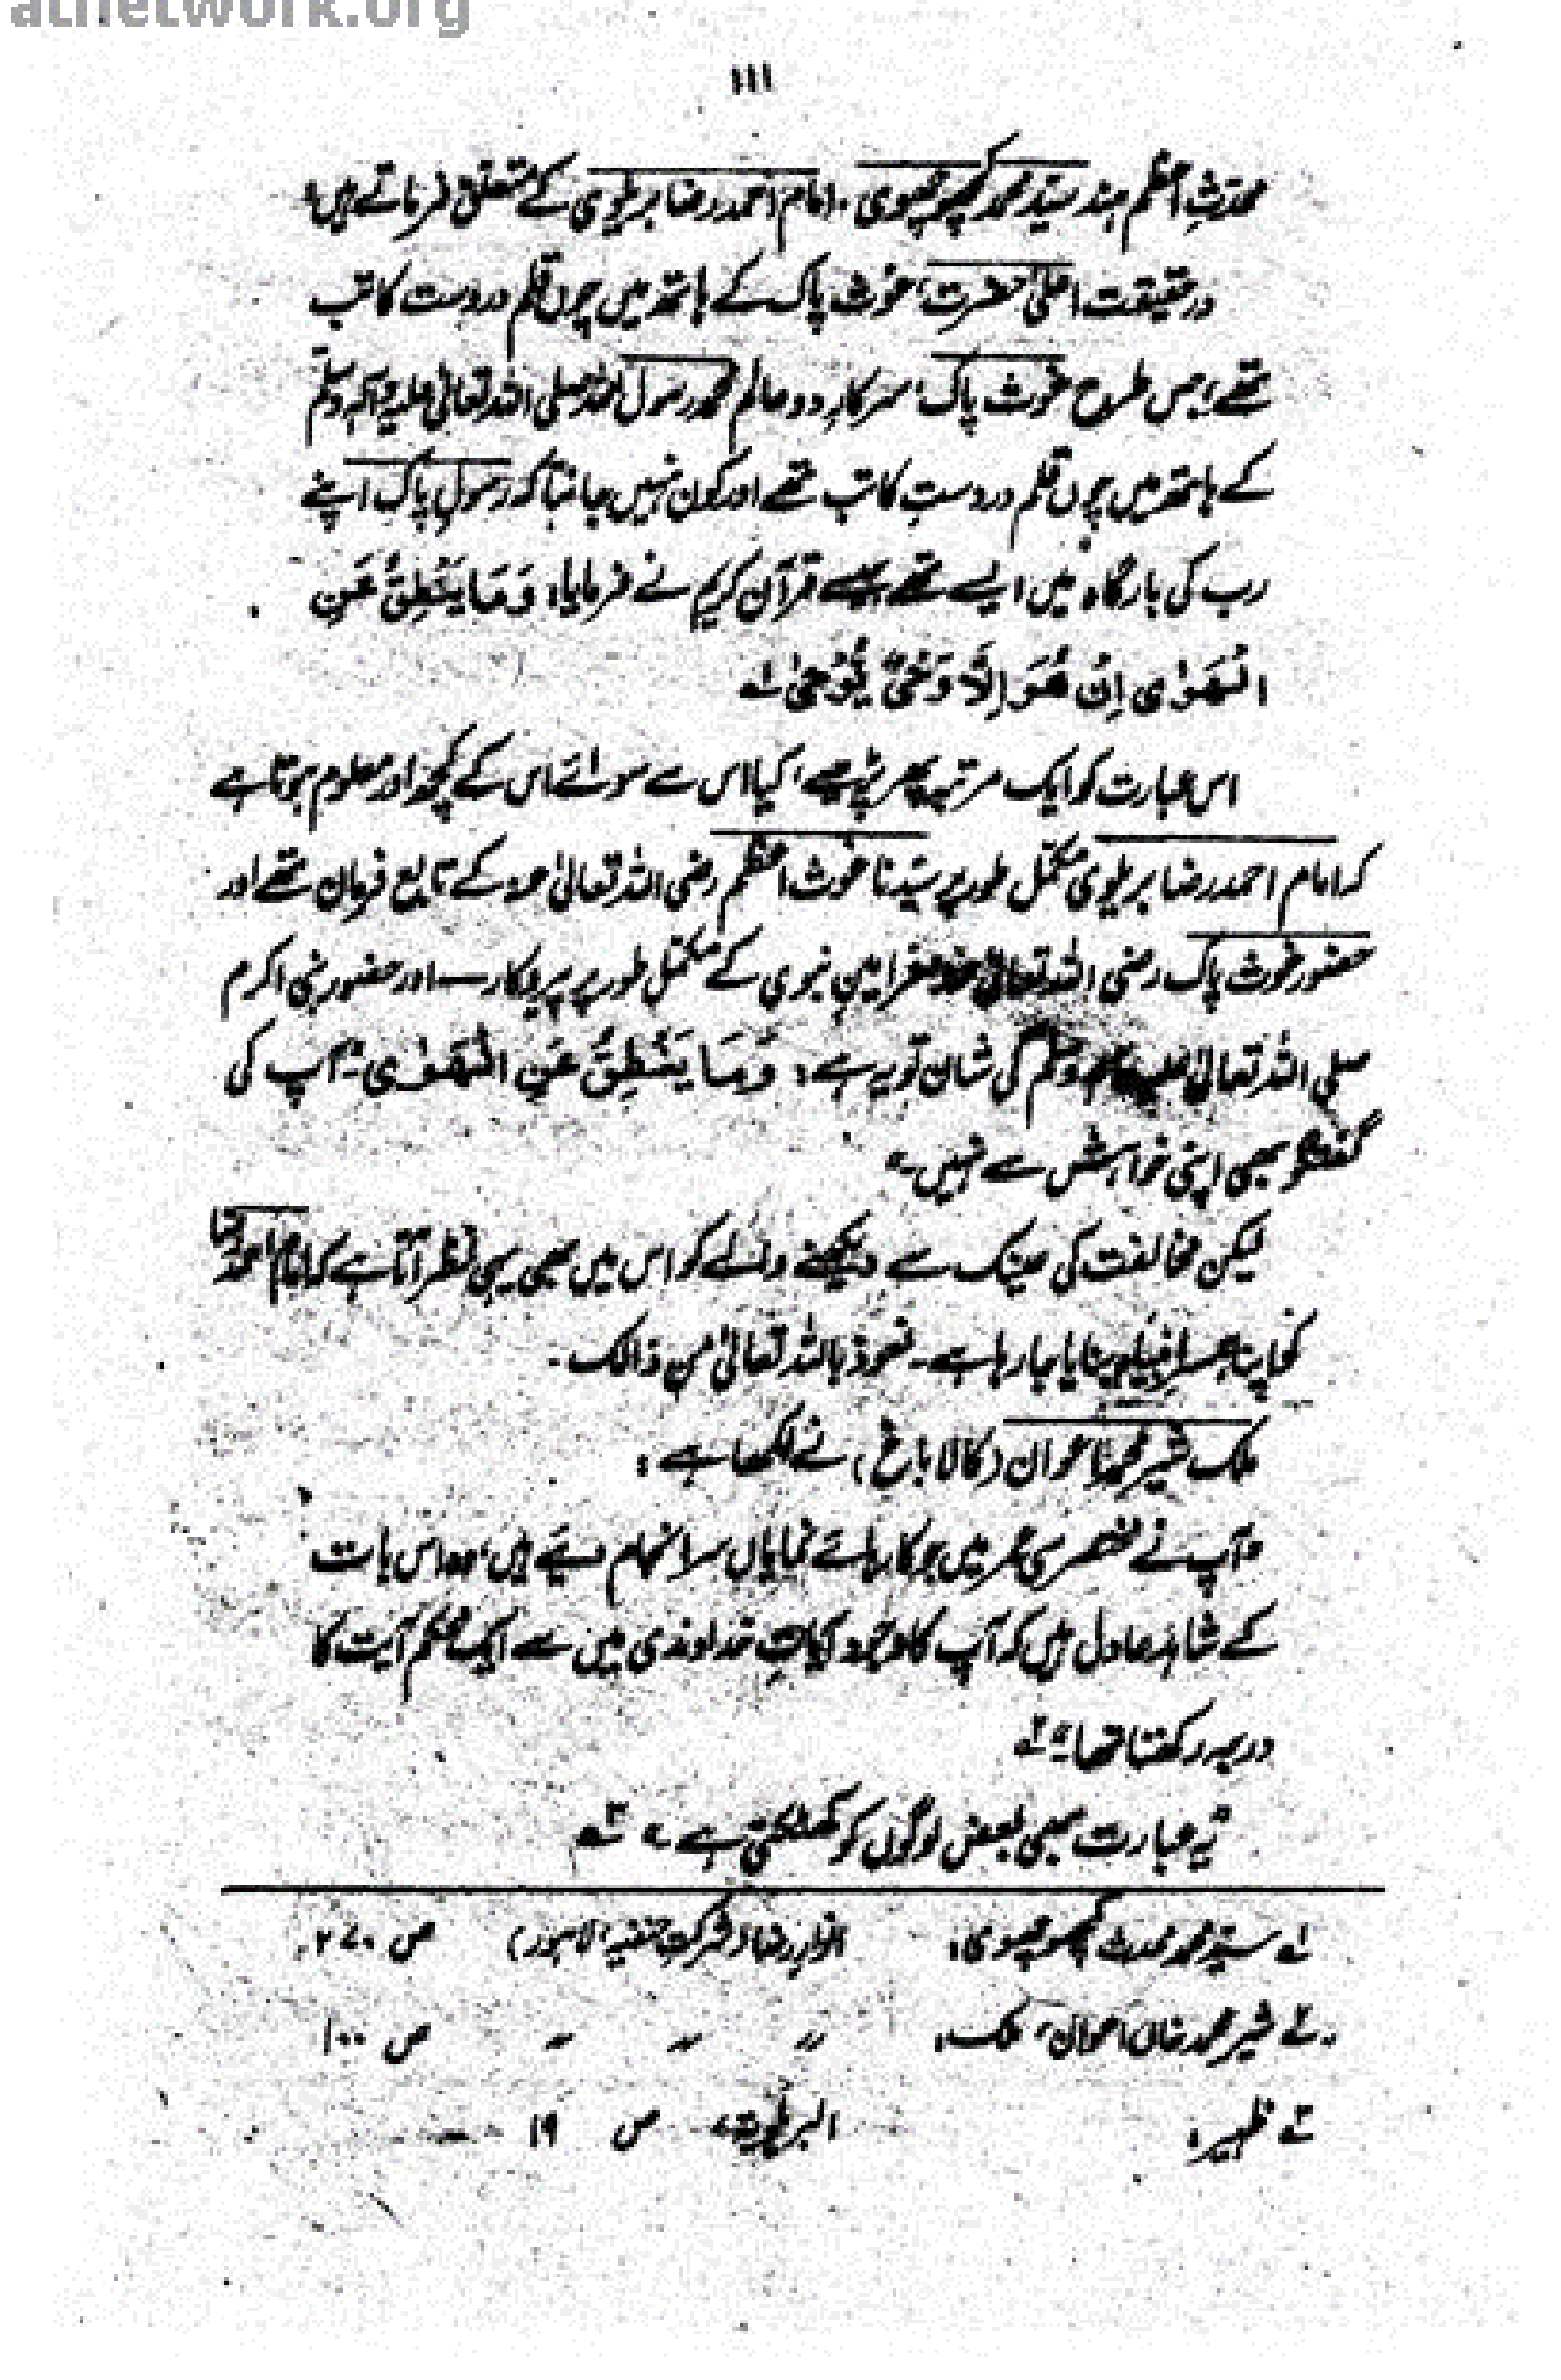 atnetwork.org
۱۱۱
محدثِ اعظم ہند سید محمد کچھوچھوی، امام احمد رضا بریلوی کے متعلق فرماتے ہیں:
درحقیقت اعلیٰ حضرت، غوث پاک کے ہاتھ میں چوں قلم در دست کاتب
تھے، جس طرح غوث پاک، سرکارِ دو عالم محمد رسول اللہ صلی اللہ تعالیٰ علیہ وآلہ وسلم
کے ہاتھ میں چوں قلم در دستِ کاتب تھے اور کون نہیں جانتا کہ رسولِ پاک اپنے
رب کی بارگاہ میں ایسے تھے جیسے قرآن کریم نے فرمایا: وَمَا يَنْطِقُ عَنِ
الْهَوٰى اِنْ هُوَ اِلَّا وَحْیٌ یُّوْحٰی ۱ے
اس عبارت کو ایک مرتبہ پھر پڑھیے، کیا اس سے سوائے اس کے کچھ اور معلوم ہوتا ہے
کہ امام احمد رضا بریلوی مکمل طور پر سیدنا غوث اعظم رضی اللہ تعالیٰ عنہ کے تابع فرمان تھے اور
حضور غوث پاک رضی اللہ تعالیٰ عنہ فرامینِ نبوی کے مکمل طور پر پیروکار ــ اور حضور نبی اکرم
صلی اللہ تعالیٰ علیہ وسلم کی شان تو یہ ہے: وَمَا يَنْطِقُ عَنِ الْهَوٰى۔ آپ کی
گفتگو بھی اپنی خواہش سے نہیں۔
لیکن مخالفت کی عینک سے دیکھنے والے کو اس میں بھی یہی نظر آتا ہے کہ امام احمد رضا
کو بنایا جا رہا ہے۔ نعوذ باللہ تعالیٰ من ذالک۔
ملک شیر محمد اعوان (کالا باغ) نے لکھا ہے:
آپ نے مختصر سی عمر میں جو کارہائے نمایاں سرانجام دیئے ہیں، وہ اس بات
کے شاہد عادل ہیں کہ آپ کا وجود آیاتِ خداوندی میں سے ایک محکم آیت کا
درجہ رکھتا تھا۔ ۲ے
یہ عبارت بھی بعض لوگوں کو کھٹکتی ہے۔ ۳ے
۱ے سید محمد محدث کچھوچھوی: انوارِ رضا (شرکتِ حنفیہ، لاہور) ص ۲۷۰
۲ے شیر محمد خاں اعوان، ملک: 〃 〃 〃 ص ۱۰۰
۳ے ظہیر: البریلویۃ، ص ۱۹